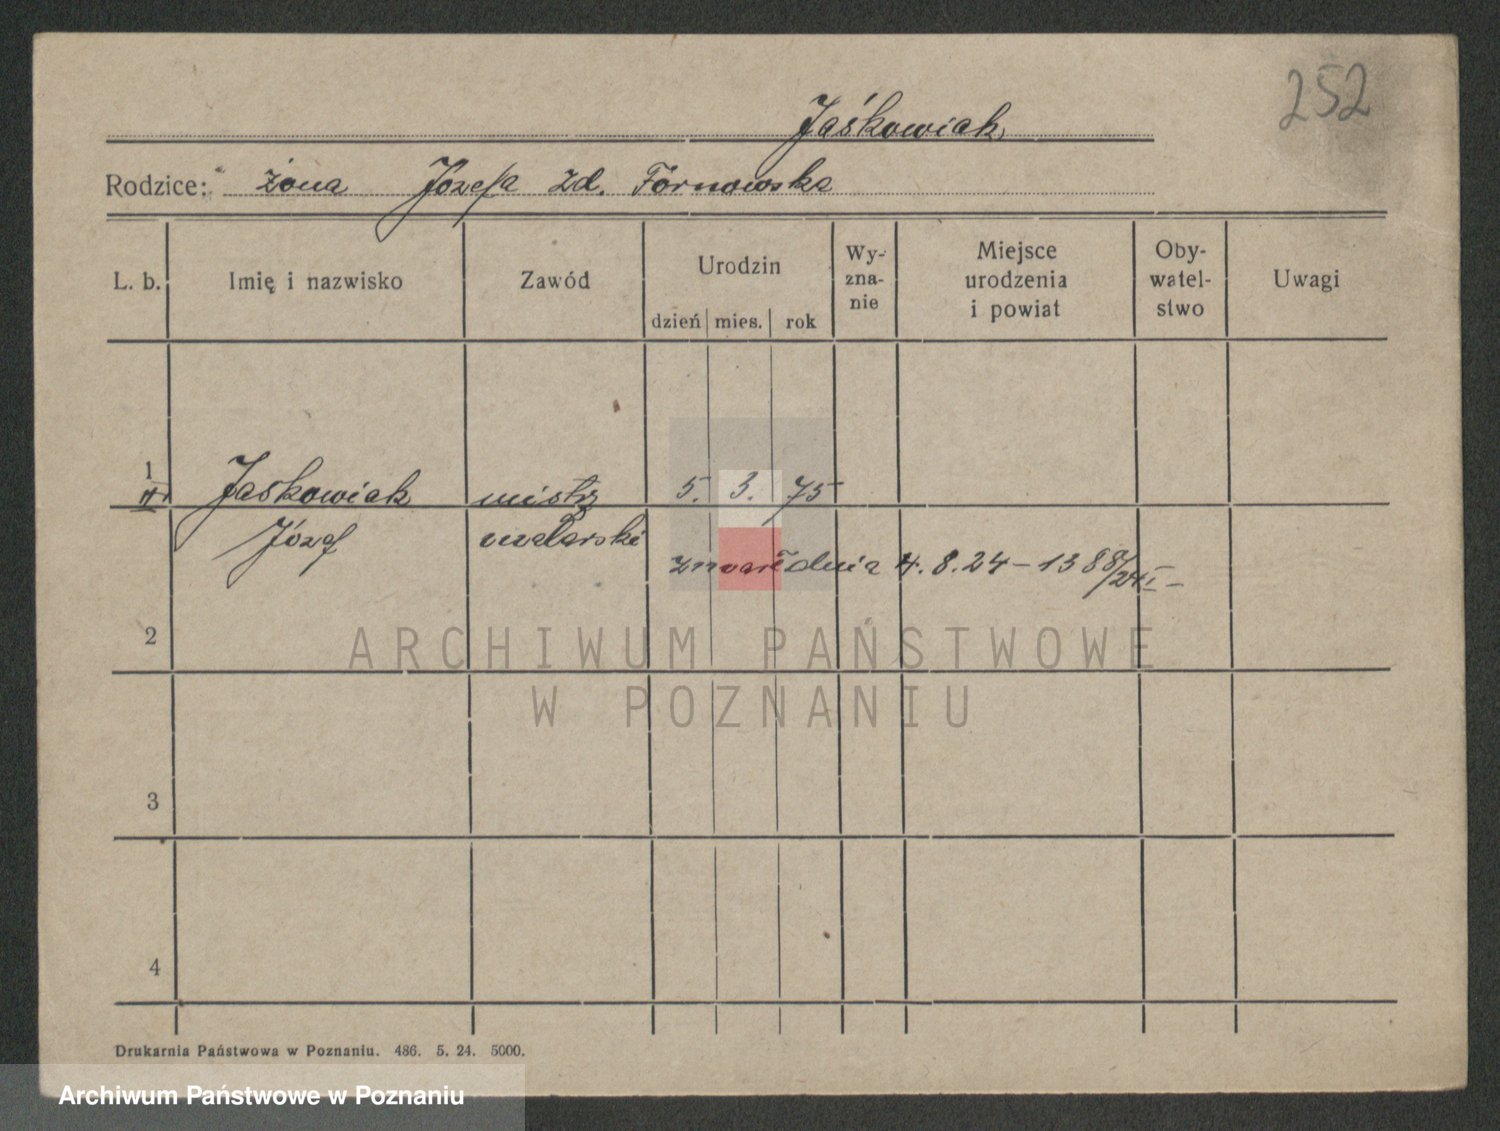 252
Jaśkowiak
Rodzice: żona Józefa zd. Fornowska
L. b.
Imię i nazwisko
Zawód
Urodzin
dzień mies. rok
Wy-
zna-
nie
Miejsce
urodzenia
i powiat
Oby-
watel-
stwo
Uwagi
1
Jaskowiak mistrz 5. 3. 75
Józef malarski
zmarł dnia 4.8.24 – 1388/24 I –
2
ARCHIWUM PAŃSTWOWE
W POZNANIU
3
4
Drukarnia Państwowa w Poznaniu. 486. 5. 24. 5000.
Archiwum Państwowe w Poznaniu